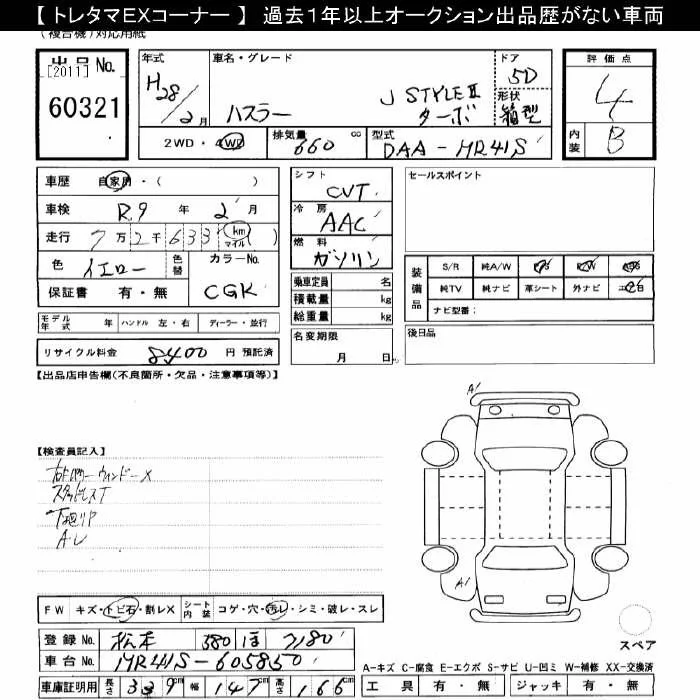 【 トレタマEXコーナー 】 過去1年以上オークション出品歴がない車両
(複合機) 対応用紙
出品 No.
[2011]
60321
年式
H28/2月
車名・グレード
ハスラー
J STYLEⅡ
ターボ
ドア
5D
形状
箱型
評価点
4
内装
B
2WD・4WD
排気量
660 cc
型式
DAA-MR41S
車歴 自家用・( )
車検 R9 年 2 月
走行 7万2千633 km マイル ( )
色 イエロー
色替
カラーNo.
CGK
保証書 有・無
シフト
CVT
冷房
AAC
燃料
ガソリン
乗車定員 名
積載量 kg
総重量 kg
名変期限
月 日
セールスポイント
装備品
S/R 純A/W P/S P/W
純TV 純ナビ 革シート 外ナビ
ナビ型番:
後日品
モデル年式 年 ハンドル 左・右 ディーラー・並行
リサイクル料金 8400 円 預託済
【出品店申告欄(不良箇所・欠品・注意事項等)】
【検査員記入】
ウィンドーX
スタッドレスT
下廻りP
A・U
A1
A1
FW キズ・トビ石・割レX シート内装 コゲ・穴・汚レ・シミ・破レ・スレ
登録 No. 松本 580 ほ 7180
車台 No. MR41S-605850
車庫証明用 長さ 339cm 幅 147cm 高さ 166cm
スペア
A-キズ C-腐食 E-エクボ S-サビ U-凹ミ W-補修 XX-交換済
工具 有・無 ジャッキ 有・無